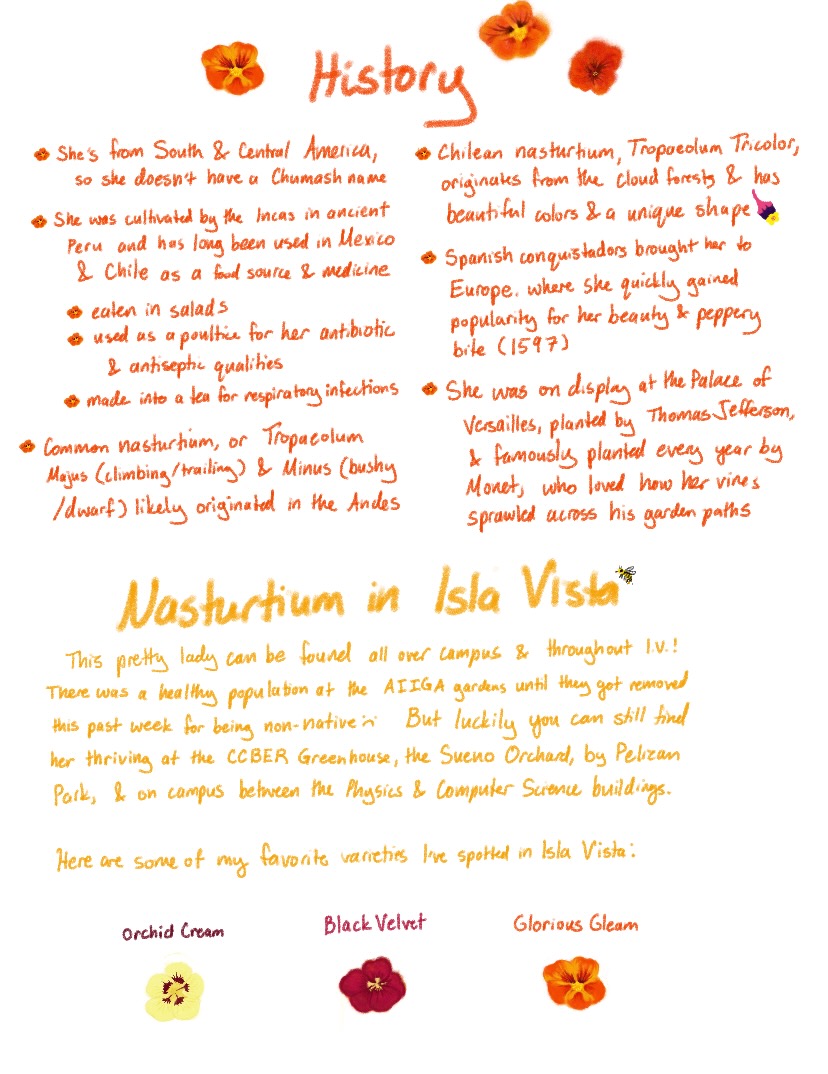 History
She's from South & Central America,
so she doesn't have a Chumash name
She was cultivated by the Incas in ancient
Peru and has long been used in Mexico
& Chile as a food source & medicine
eaten in salads
used as a poultice for her antibiotic
& antiseptic qualities
made into a tea for respiratory infections
Common nasturtium, or Tropaeolum
Majus (climbing/trailing) & Minus (bushy
/dwarf) likely originated in the Andes
Chilean nasturtium, Tropaeolum Tricolor,
originates from the cloud forests & has
beautiful colors & a unique shape
Spanish conquistadors brought her to
Europe. where she quickly gained
popularity for her beauty & peppery
bite (1597)
She was on display at the Palace of
Versailles, planted by Thomas Jefferson,
& famously planted every year by
Monet, who loved how her vines
sprawled across his garden paths
Nasturtium in Isla Vista
This pretty lady can be found all over campus & throughout I.V.!
There was a healthy population at the AIIGA gardens until they got removed
this past week for being non-native :( But luckily you can still find
her thriving at the CCBER Greenhouse, the Sueno Orchard, by Pelican
Park, & on campus between the Physics & Computer Science buildings.
Here are some of my favorite varieties I've spotted in Isla Vista:
Orchid Cream
Black Velvet
Glorious Gleam